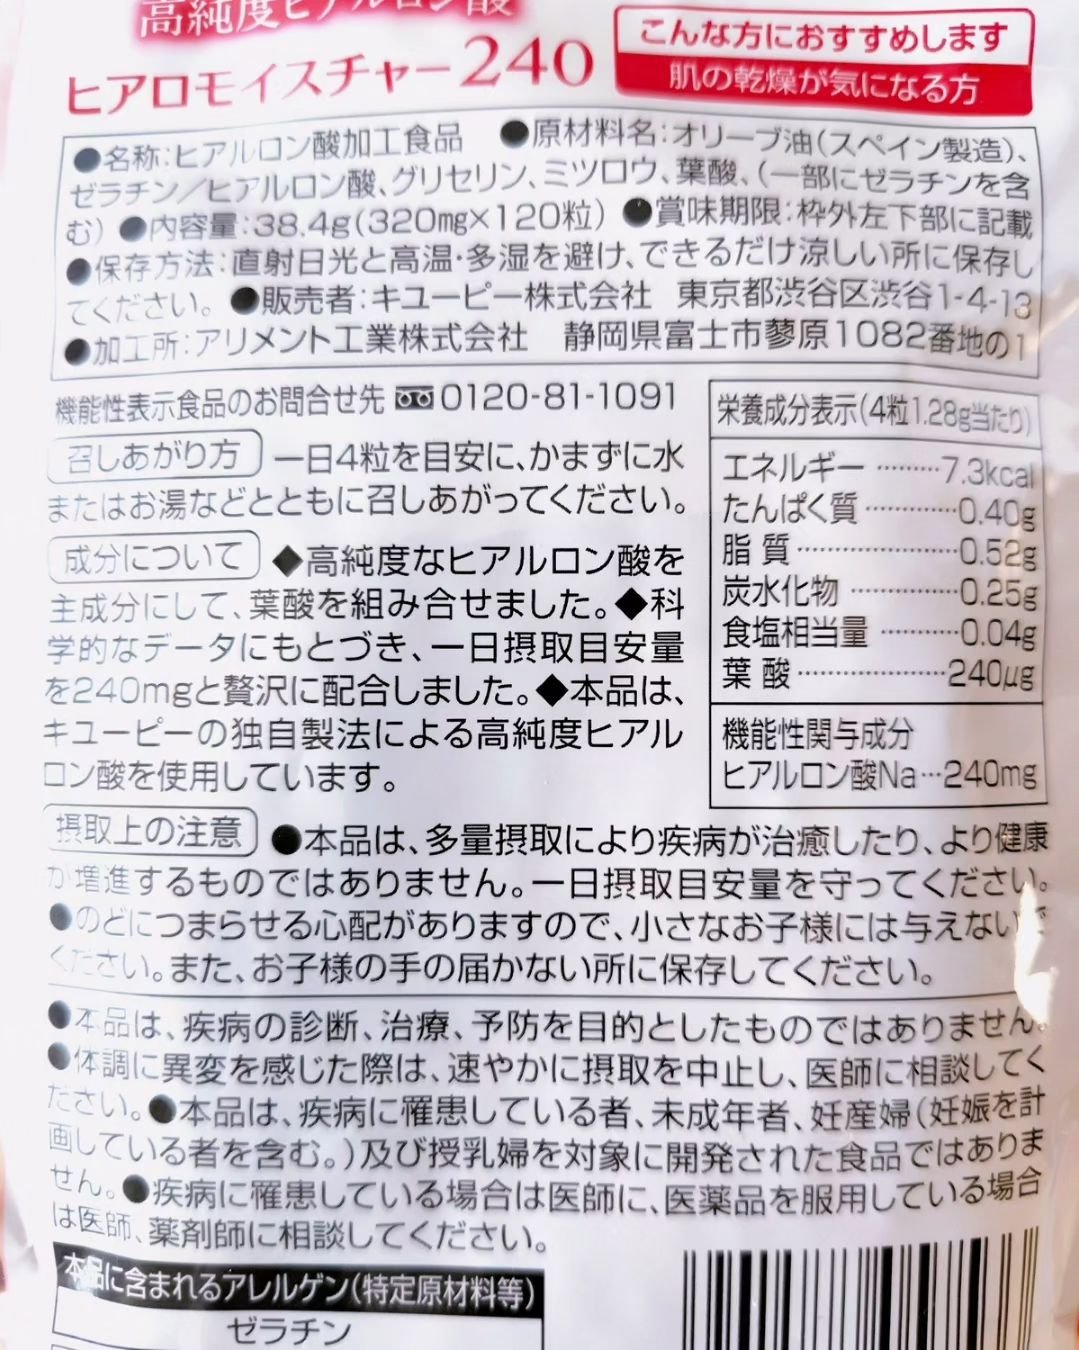 高純度ヒアルロン酸
ヒアロモイスチャー240
こんな方におすすめします
肌の乾燥が気になる方
●名称:ヒアルロン酸加工食品 ●原材料名:オリーブ油(スペイン製造)、
ゼラチン/ヒアルロン酸、グリセリン、ミツロウ、葉酸、(一部にゼラチンを含
む) ●内容量:38.4g(320mg×120粒) ●賞味期限:枠外左下部に記載
●保存方法:直射日光と高温・多湿を避け、できるだけ涼しい所に保存し
てください。 ●販売者:キユーピー株式会社 東京都渋谷区渋谷1-4-13
●加工所:アリメント工業株式会社 静岡県富士市蓼原1082番地の1
機能性表示食品のお問合せ先 0120-81-1091
召しあがり方 一日4粒を目安に、かまずに水
またはお湯などとともに召しあがってください。
成分について ◆高純度なヒアルロン酸を
主成分にして、葉酸を組み合せました。◆科
学的なデータにもとづき、一日摂取目安量
を240mgと贅沢に配合しました。◆本品は、
キユーピーの独自製法による高純度ヒアル
ロン酸を使用しています。
栄養成分表示(4粒1.28g当たり)
エネルギー………7.3kcal
たんぱく質…………0.40g
脂質……………………0.52g
炭水化物……………0.25g
食塩相当量…………0.04g
葉酸…………………240μg
機能性関与成分
ヒアルロン酸Na…240mg
摂取上の注意 ●本品は、多量摂取により疾病が治癒したり、より健康
が増進するものではありません。一日摂取目安量を守ってください。
●のどにつまらせる心配がありますので、小さなお子様には与えないで
ください。また、お子様の手の届かない所に保存してください。
●本品は、疾病の診断、治療、予防を目的としたものではありません。
●体調に異変を感じた際は、速やかに摂取を中止し、医師に相談してく
ださい。●本品は、疾病に罹患している者、未成年者、妊産婦(妊娠を計
画している者を含む。)及び授乳婦を対象に開発された食品ではありま
せん。●疾病に罹患している場合は医師に、医薬品を服用している場合
は医師、薬剤師に相談してください。
本品に含まれるアレルゲン(特定原材料等)
ゼラチン